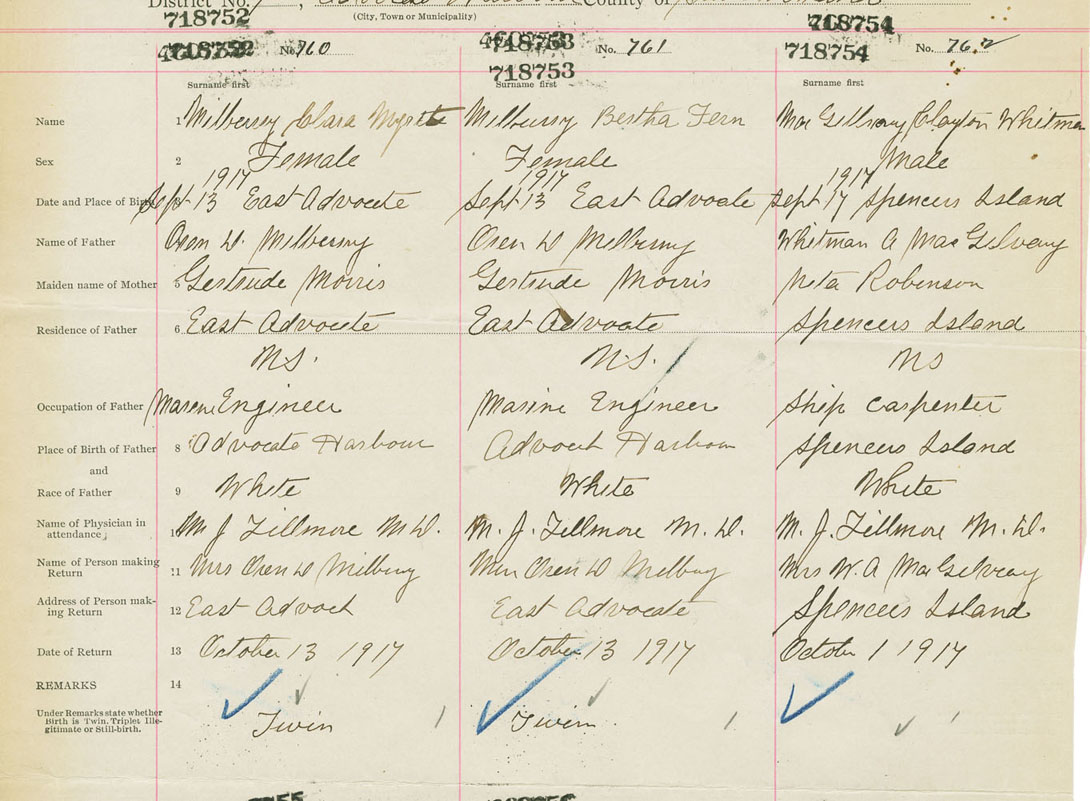 District No. County of
(City, Town or Municipality)
718752 718754
718752 No. 760 718753 No. 761 718754 No. 762
718753
Surname first Surname first Surname first
Name 1 Milberry Clara Milburry Bertha Fern Mac Gillvary Clayton Whitman
Sex 2 Female Female Male
1917 1917 1917
Date and Place of Birth Sept 13 East Advocate Sept 13 East Advocate Sept 17 Spencers Island
Name of Father Oren D. Milberry Oren D Milberry Whitman A Mac Gilveay
Maiden name of Mother 5 Gertrude Morris Gertrude Morris Neta Robinson
Residence of Father 6 East Advocate East Advocate Spencers Island
N.S. N.S. NS
Occupation of Father Marine Engineer Marine Engineer Ship Carpenter
Place of Birth of Father 8 Advocate Harbour Advocat Harbour Spencers Island
and
Race of Father 9 White White White
Name of Physician in
attendance M J Fillmore M.D. M. J. Fillmore M.D. M. J. Fillmore M.D.
Name of Person making
Return 11 Mrs Oren D Milbury Oren D Milbury Mrs W. A MacGilveay
Address of Person mak-
ing Return 12 East Advocat East Advocate Spencers Island
Date of Return 13 October 13 1917 October 13 1917 October 1 1917
REMARKS 14
Under Remarks state whether
Birth is Twin. Triplet Ille-
gitimate or Still-birth.
Twin Twin